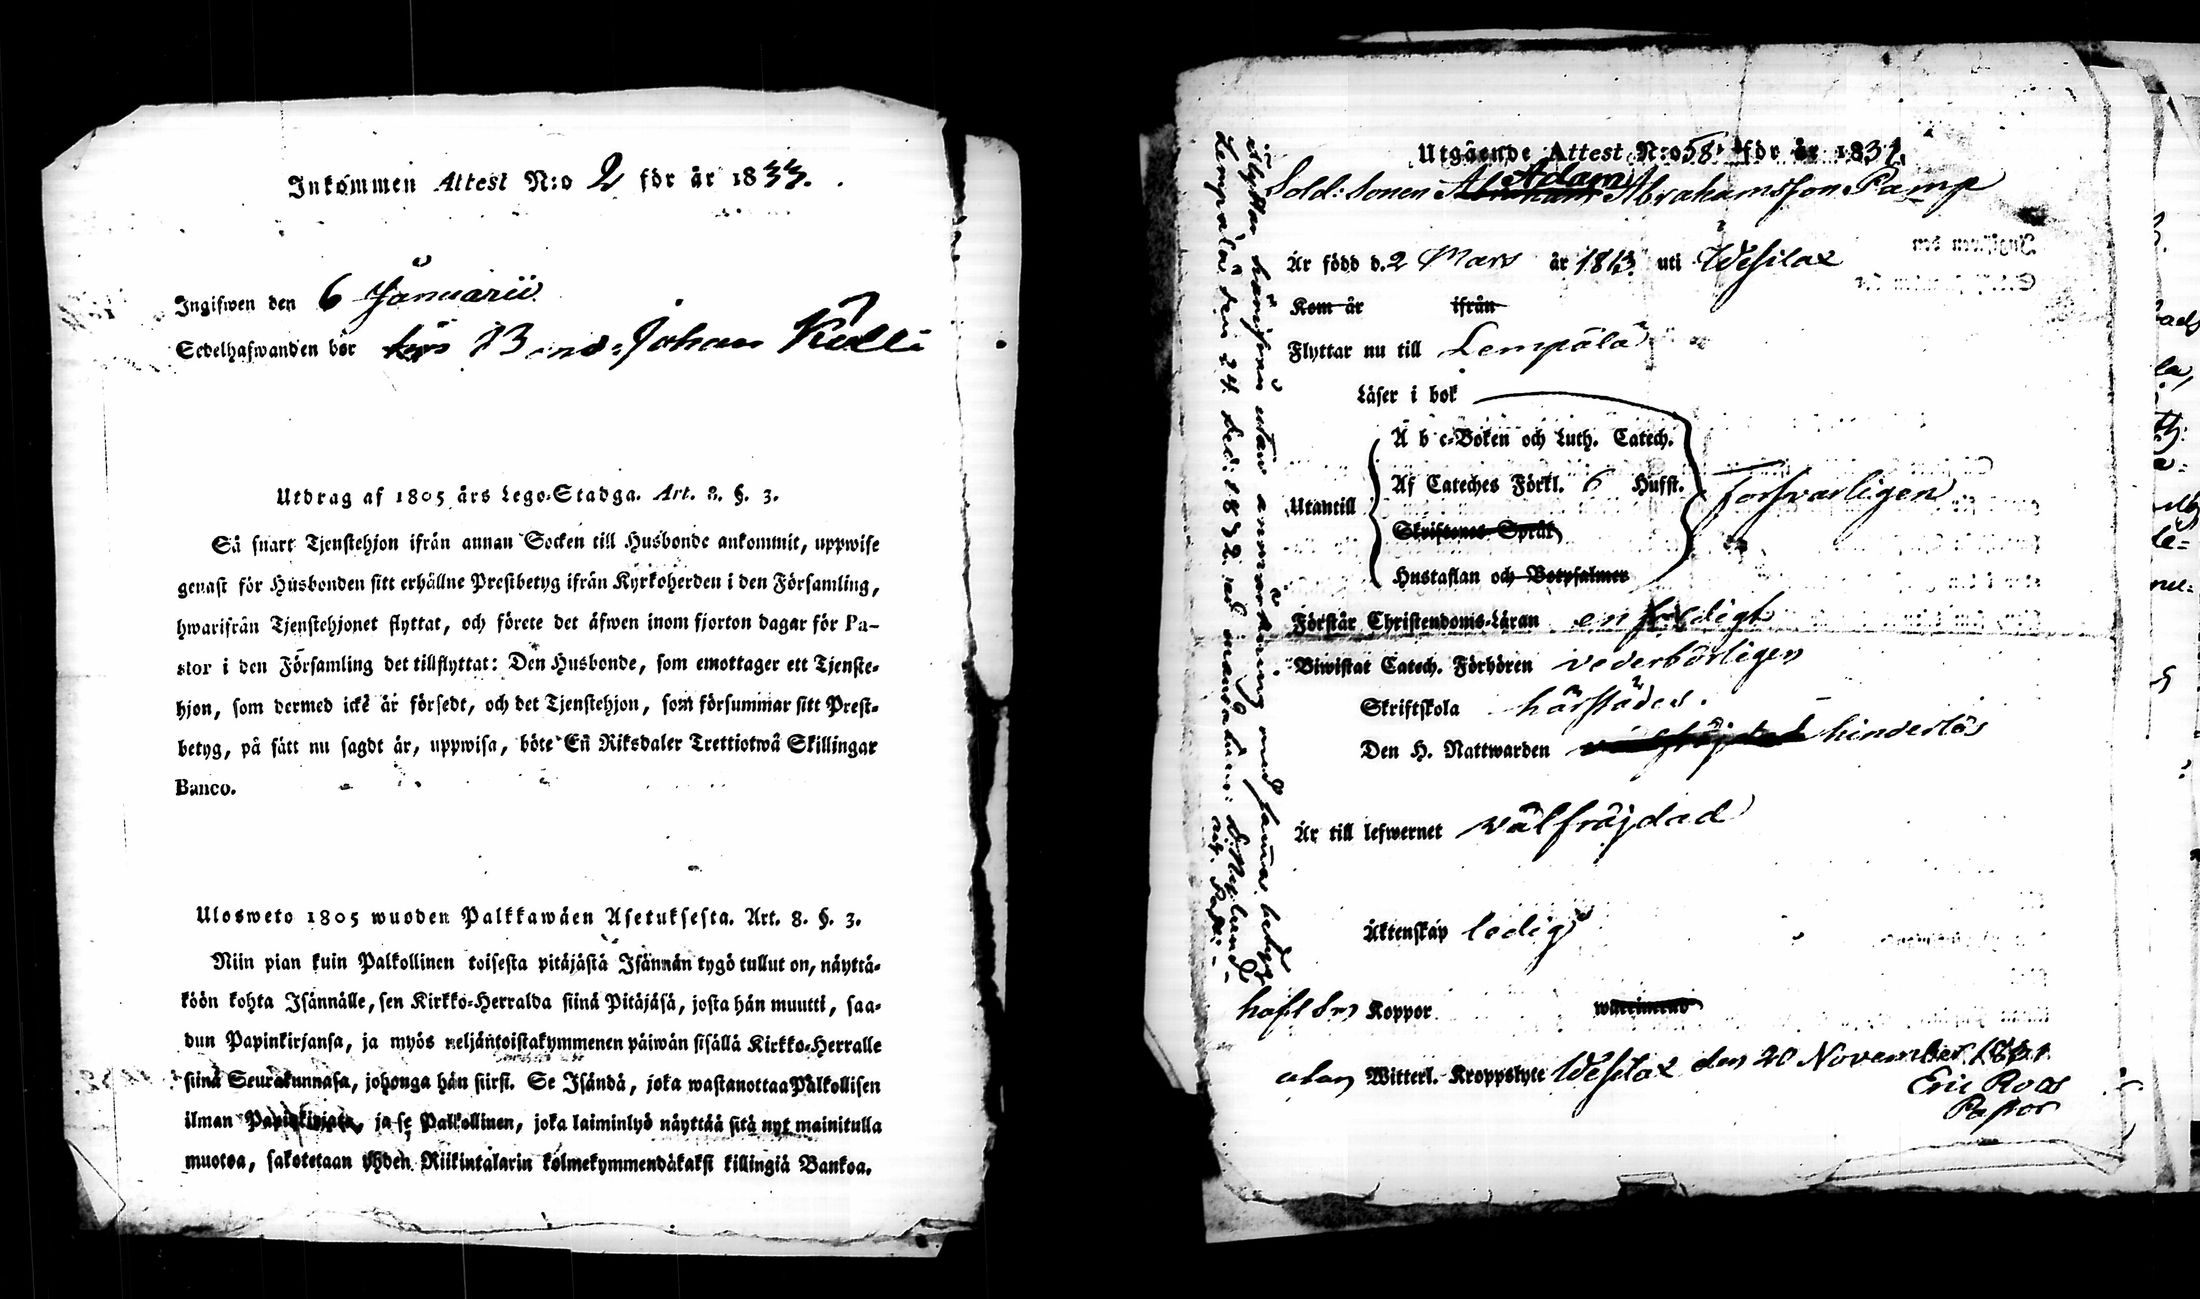 Inkommen Attest N:o 2 för år 1833.
Ingifwen den 6 Januarii
Sedelhafwanden bor hos Johan Kulli
Utdrag af 1805 års Lego-Stadga. Art. 8. §. 3.
Så snart Tjenstehjon ifrån annan Socken till Husbonde ankommit, uppwise
genast för Husbonden sitt erhållne Prestbetyg ifrån Kyrkoherden i den Församling,
hwarifrån Tjenstehjonet flyttat, och förete det äfwen inom fjorton dagar för Pa-
stor i den Församling det tillflyttat: Den Husbonde, som emottager ett Tjenste-
hjon, som dermed icke är försedt, och det Tjenstehjon, som försummar sitt Prest-
betyg, på sätt nu sagdt är, uppwisa, böte En Riksdaler Trettiotwå Skillingar
Banco.
Ulosweto 1805 wuoden Palkkawäen Asetuksesta. Art. 8. §. 3.
Niin pian kuin Palkollinen toisesta pitäjästä Isännän tygö tullut on, näyttä-
köön kohta Isännälle, sen Kirkko-Herralda siinä Pitäjäsä, josta hän muutti, saa-
dun Papinkirjansa, ja myös neljäntoistakymmenen päiwän sisällä Kirkko-Herralle
siinä Seurakunnasa, johonga hän siirsi. Se Isändä, joka wastanottaa Palkollisen
ilman Papinkirjata, ja se Palkollinen, joka laiminlyö näyttää sitä nyt mainitulla
muotoa, sakotetaan yhden Riikintalarin kolmekymmendäkaksi killingiä Bankoa.
Utgående Attest N:o 58 för år 1832.
Adam
Sold: Sonen Abraham Abrahamsson Pamp
Är född d. 2 Mars år 1813 uti Wesilax
Kom år ifrån
Flyttar nu till Lempälä
Läser i bok
A b c-Boken och Luth. Catech.
Utantill Af Cateches Förkl. 6 Hufst. Försvarligen
Skriftenes Språk
Hustaflan och Botpsalmer
Förstår Christendoms-Läran enfaldigt
Biwistat Catech. Förhören vederbörligen
Skriftskola härstädes.
Den H. Nattwarden hinderlös
Är till lefwernet välfräjdad
Äktenskap ledig
haft Koppor waccinerad
utan Witterl. Kroppslyte Wesilax den 20 November 1832
Eric Roos
Pastor
utflyttar härifrån utan anmärkning med samma betyg
Lempälä den 24 Dec: 1832